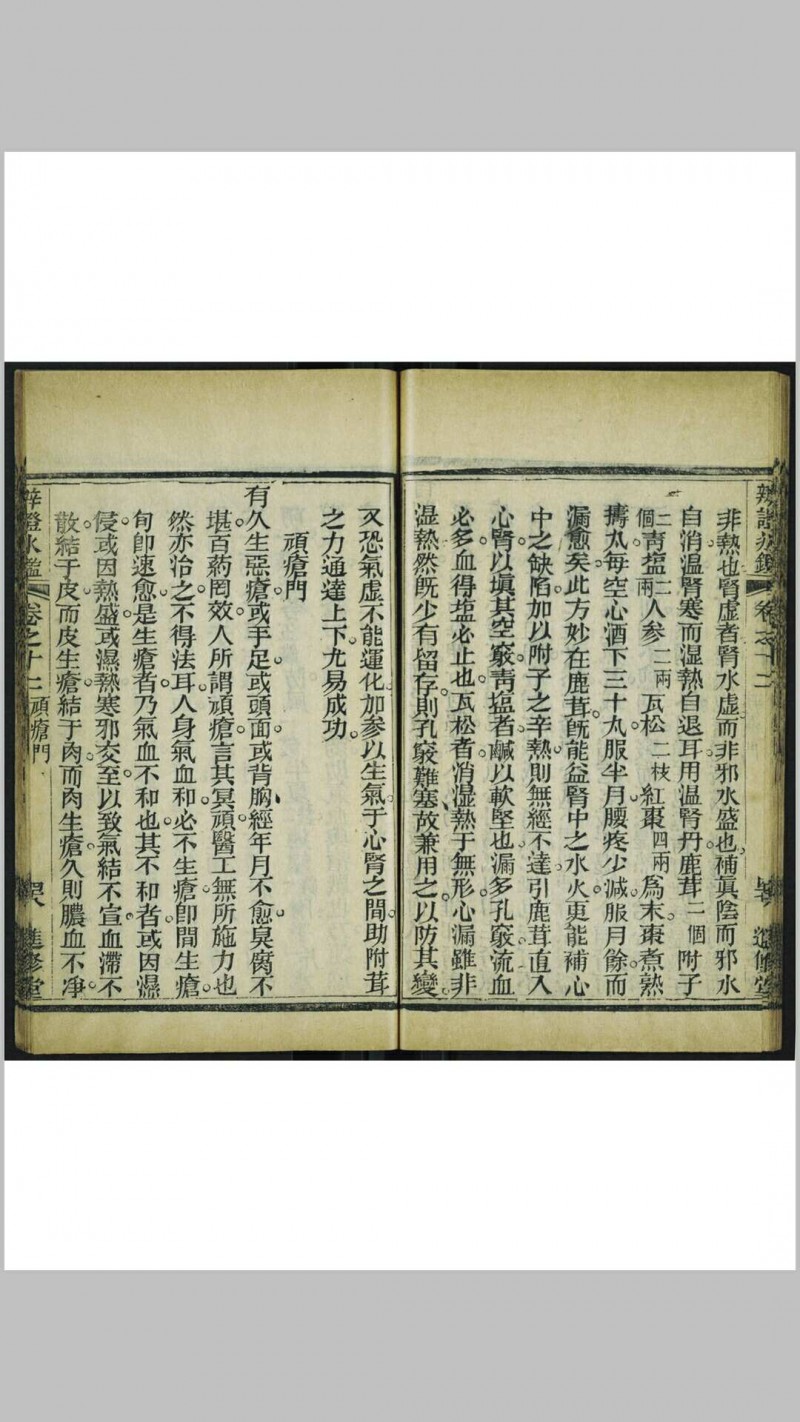 非熱也腎虛者腎水虛而非邪水盛也補眞陰而邪水
自消温腎寒而湿熱自退耳用温腎丹鹿茸二個附子
二個靑塩二兩人参二兩瓦松二枝紅棗四兩爲末棗煮熟
搗丸每空心酒下三十丸服半月腰疼少减服月餘而
漏愈矣此方妙在鹿茸旣能益腎中之水火更能補心
中之缺陷加以附子之辛熱則無經不達引鹿茸直入
心腎以塡其空竅靑塩者鹹以軟堅也漏多孔竅流血
必多血得塩必止也瓦松者消湿熱于無形心漏雖非
湿熱然旣少有留存則孔竅難塞故兼用之以防其變
又恐氣虛不能運化加参以生氣于心腎之間助附茸
之力通達上下尤易成功
頑瘡門
有久生惡瘡或手足或頭面或背胸經年月不愈臭腐不
堪百葯罔效人所謂頑瘡言其冥頑醫工無所施力也
然亦治之不得法耳人身氣血和必不生瘡卽間生瘡
旬卽速愈是生瘡者乃氣血不和也其不和者或因濕
侵或因熱盛或濕熱寒邪交至以致氣結不宣血滯不
散結于皮而皮生瘡結于肉而肉生瘡久則膿血不凈
卷之十二 頑瘡門